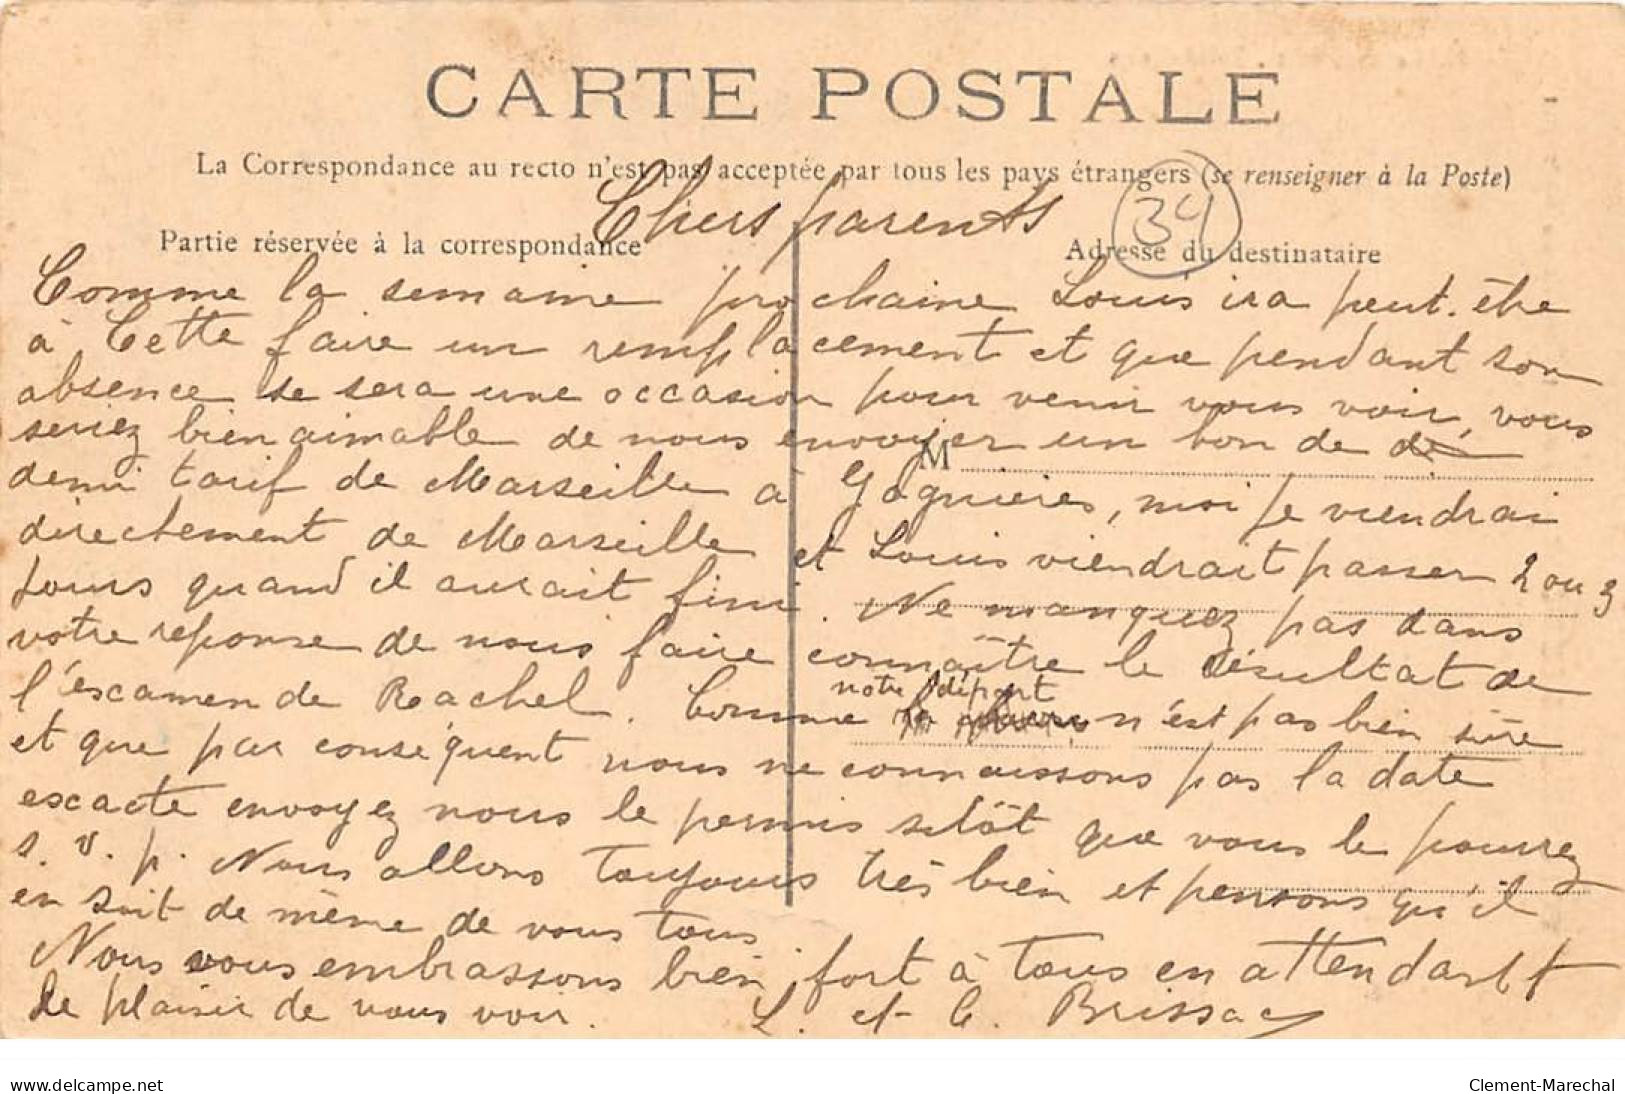 CARTE POSTALE
La Correspondance au recto n'est pas acceptée par tous les pays étrangers (se renseigner à la Poste)
34
Chers parents
Partie réservée à la correspondance
Adresse du destinataire
Comme la semaine prochaine Louis ira peut-être
à Cette faire un remplacement et que pendant son
absence ce sera une occasion pour venir vous voir, vous
seriez bien aimable de nous envoyer un bon de
M
demi tarif de Marseille à Gagnieres, moi je viendrai
directement de Marseille et Louis viendrait passer 2 ou 3
jours quand il aurait fini. Ne manquez pas dans
votre reponse de nous faire connaître le résultat de
l'escamen de Rachel. Comme notre départ n'est pas bien sûre
et que par conséquent nous ne connaissons pas la date
escacte envoyez nous le permis sitôt que vous le pourrez
s. v. p. Nous allons toujours très bien et pensons qu'il
en soit de même de vous tous.
Nous vous embrassons bien fort à tous en attendant
le plaisir de vous voir. L. et C. Brissac
www.delcampe.net
Clement-Marechal